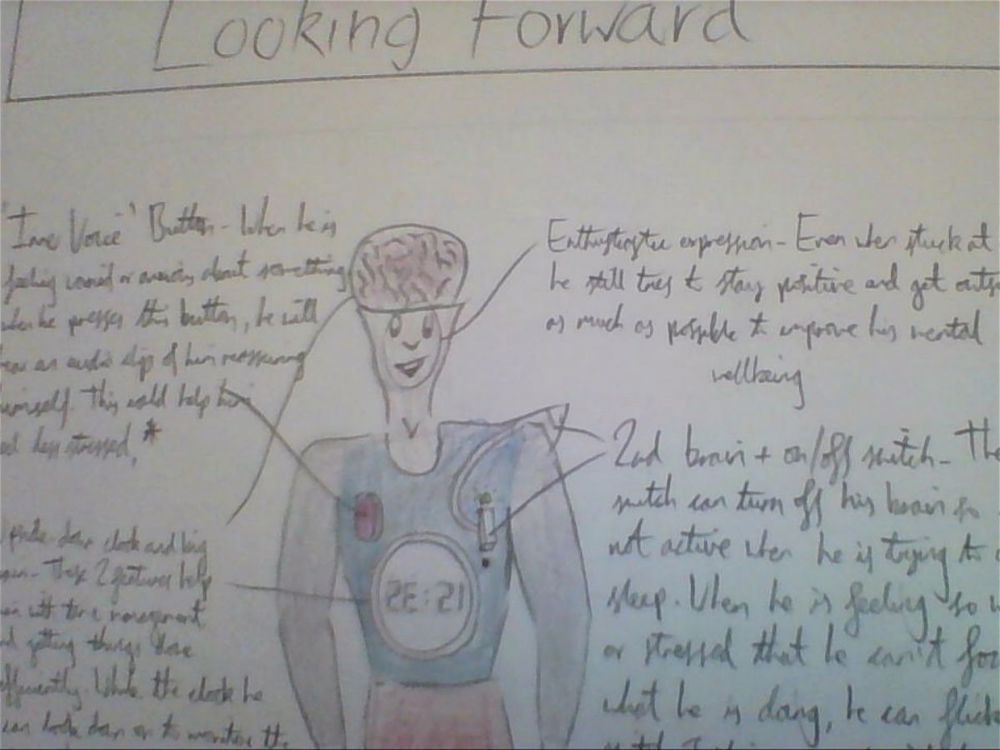 Looking Forward
"Inner Voice" Button - When he is
feeling worried or anxious about something
when he presses this button, he will
hear an audio clip of him reassuring
himself. This could help him
feel less stressed. *
upside-down clock and big
brain - These 2 features help
him with time management
and getting things done
efficiently. While the clock he
can look down on to monitor the
Enthusiastic expression - Even when stuck at
he still tries to stay positive and get outs
as much as possible to improve his mental
wellbeing
2nd brain + on/off switch - The
switch can turn off his brain so
not active when he is trying to
sleep. When he is feeling so
or stressed that he can't fo
what he is doing, he can flick